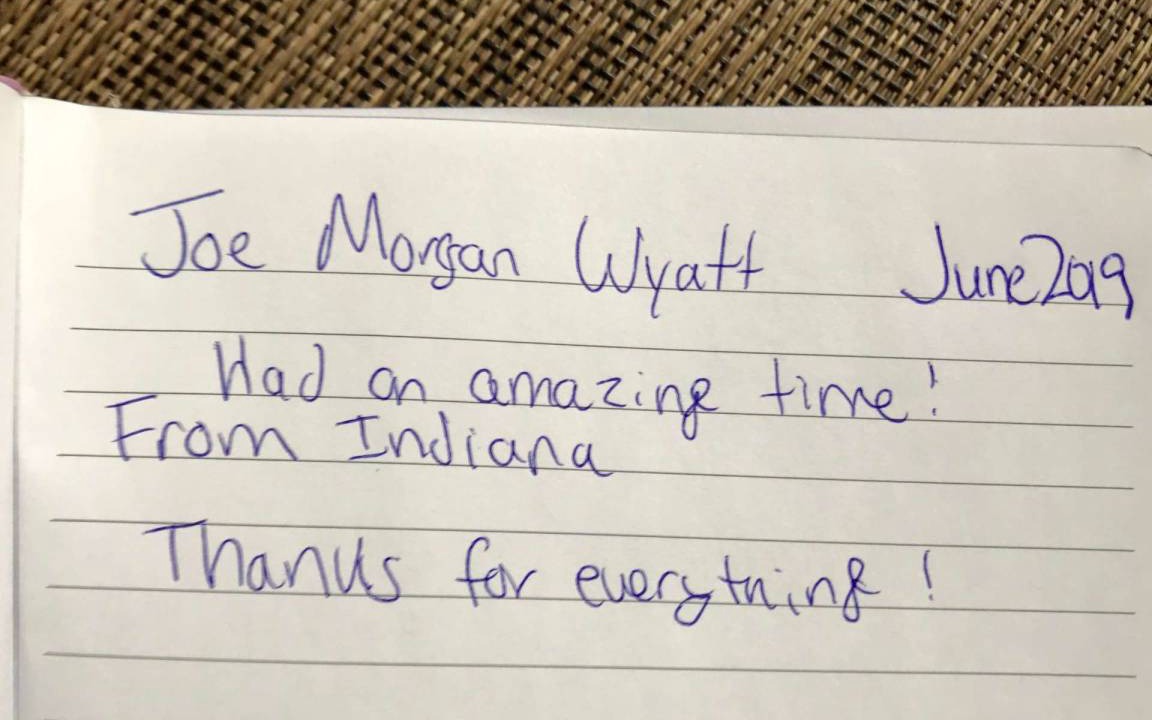 Joe Morgan Wyatt June 2019
Had an amazing time!
From Indiana
Thanks for everything!